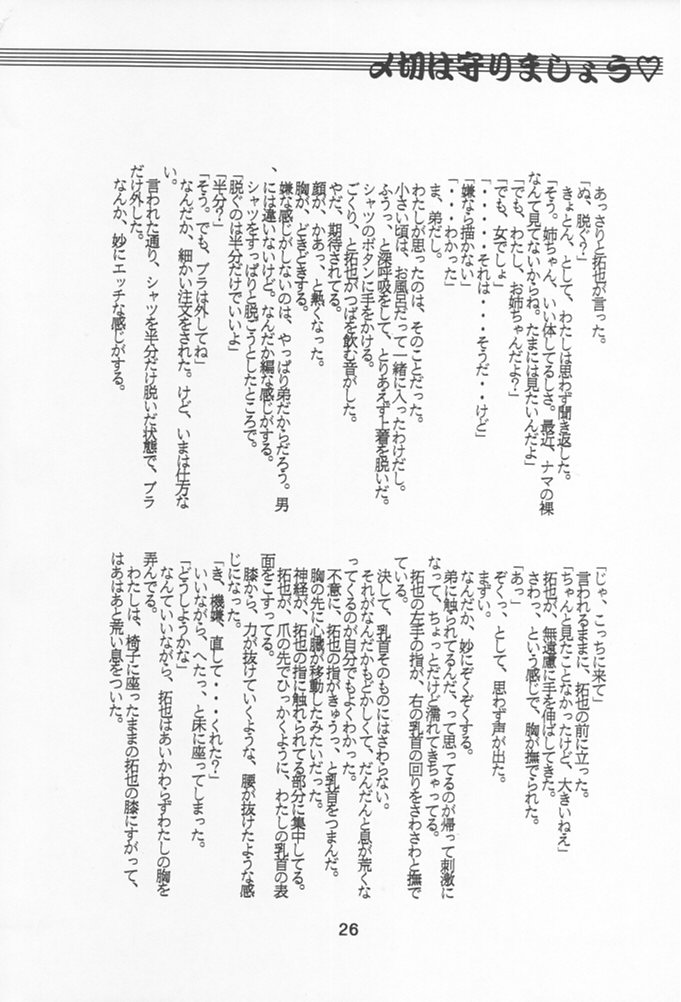 〆切は守りましょう♡
あっさりと拓也が言った。
「ぬ、脱ぐ?」
きょとん、として、わたしは思わず聞き返した。
「そう。姉ちゃん、いい体してるしさ。最近、ナマの裸
なんて見てないからね。たまには見たいんだよ」
「でも、わたし、お姉ちゃんだよ?」
「でも、女でしょ」
「・・・・、それは・・・そうだ・・けど」
「嫌なら描かない」
「・・・わかった」
ま、弟だし。
わたしが思ったのは、そのことだった。
小さい頃は、お風呂だって一緒に入ったわけだし。
ふうっ、と深呼吸をして、とりあえず上着を脱いだ。
シャツのボタンに手をかける。
ごくり、と拓也がつばを飲む音がした。
やだ、期待されてる。
顔が、かあっ、と熱くなった。
胸が、どきどきする。
嫌な感じがしないのは、やっぱり弟だからだろう。男
、には違いないけど。なんだか編な感じがする。
シャツをすっぱりと脱ごうとしたところで。
「脱ぐのは半分だけでいいよ」
「半分?」
「そう。でも、ブラは外してね」
なんだか、細かい注文をされた。けど、いまは仕方な
い。
言われた通り、シャツを半分だけ脱いだ状態で、ブラ
だけ外した。
なんか、妙にエッチな感じがする。
「じゃ、こっちに来て」
言われるままに、拓也の前に立った。
「ちゃんと見たことなかったけど、大きいねえ」
拓也が、無遠慮に手を伸ばしてきた。
さわっ、という感じで、胸が撫でられた。
「あっ」
ぞくっ、として、思わず声が出た。
まずい。
なんだか、妙にぞくぞくする。
弟に触られてるんだ、って思ってるのが帰って刺激に
なって、ちょっとだけど濡れてきちゃってる。
拓也の左手の指が、右の乳首の回りをさわさわと撫で
ている。
決して、乳首そのものにはさわらない。
それがなんだかもどかしくて、だんだんと息が荒くな
ってくるのが自分でもよくわかった。
不意に、拓也の指がきゅうっ、と乳首をつまんだ。
胸の先に心臓が移動したみたいだった。
神経が、拓也の指に触れられてる部分に集中してる。
拓也が、爪の先でひっかくように、わたしの乳首の表
面をこすってる。
膝から、力が抜けていくような、腰が抜けたような感
じになった。
「き、機嫌、直して・・・くれた?」
いいながら、へたっ、と床に座ってしまった。
「どうしようかな」
なんていいながら、拓也はあいかわらずわたしの胸を
弄んでる。
わたしは、椅子に座ったままの拓也の膝にすがって、
はあはあと荒い息をついた。
26